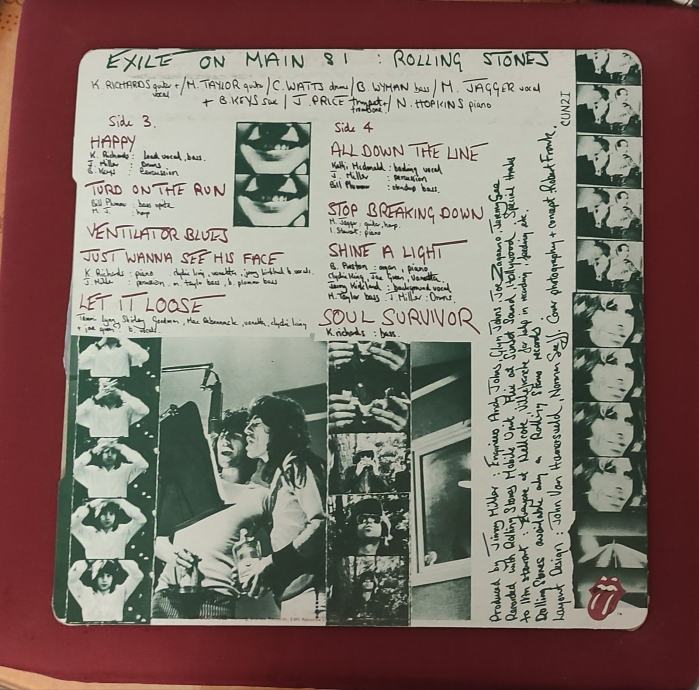 EXILE ON MAIN ST : ROLLING STONES
K. RICHARDS guitar + / M. TAYLOR guitar / C. WATTS drums / B. WYMAN bass / M. JAGGER vocal
vocal
+ B. KEYS sax / J. PRICE trumpet + / N. HOPKINS piano
trombone
Side 3.
HAPPY
K. Richards : lead vocal, bass.
J. Miller : Drums.
B. Keys : percussion
TURD ON THE RUN
Bill Plummer bass
M. J. : harp
VENTILATOR BLUES
JUST WANNA SEE HIS FACE
K. Richards : piano
J. Miller : percussion, m. taylor bass, b. plummer bass
LET IT LOOSE
Tammi Lynn, Shirley Goodman, Mac Rebennack, vanetta, clydie king
+ joe green b. vocal
Side 4
ALL DOWN THE LINE
Kathi Mcdonald : backing vocal
J. Miller : percussion
Bill Plummer : standup bass.
STOP BREAKING DOWN
M. Jagger : guitar, harp.
I. Stewart : piano
SHINE A LIGHT
B. Preston : organ, piano
Clydie King, Joe Green, Vanetta,
Jerry Kirkland : background vocal
M. Taylor bass J. Miller : Drums.
SOUL SURVIVOR
K. richards : bass.
Produced by Jimmy Miller : Engineers Andy Johns, Glyn Johns, Joe Zagarino, Jeremy Gee
Recorded with Rolling Stones Mobile Unit Mix at Sunset Sound, Hollywood. Special thanks
to Ian stewart : everyone at Nellcote Villefranche for help in recording, feeding etc.
Rolling Stones available only on Rolling Stones records
Layout Design : John Van Hamersveld, Norman Seeff. Cover photography + concept Robert Frank.
CUN2I